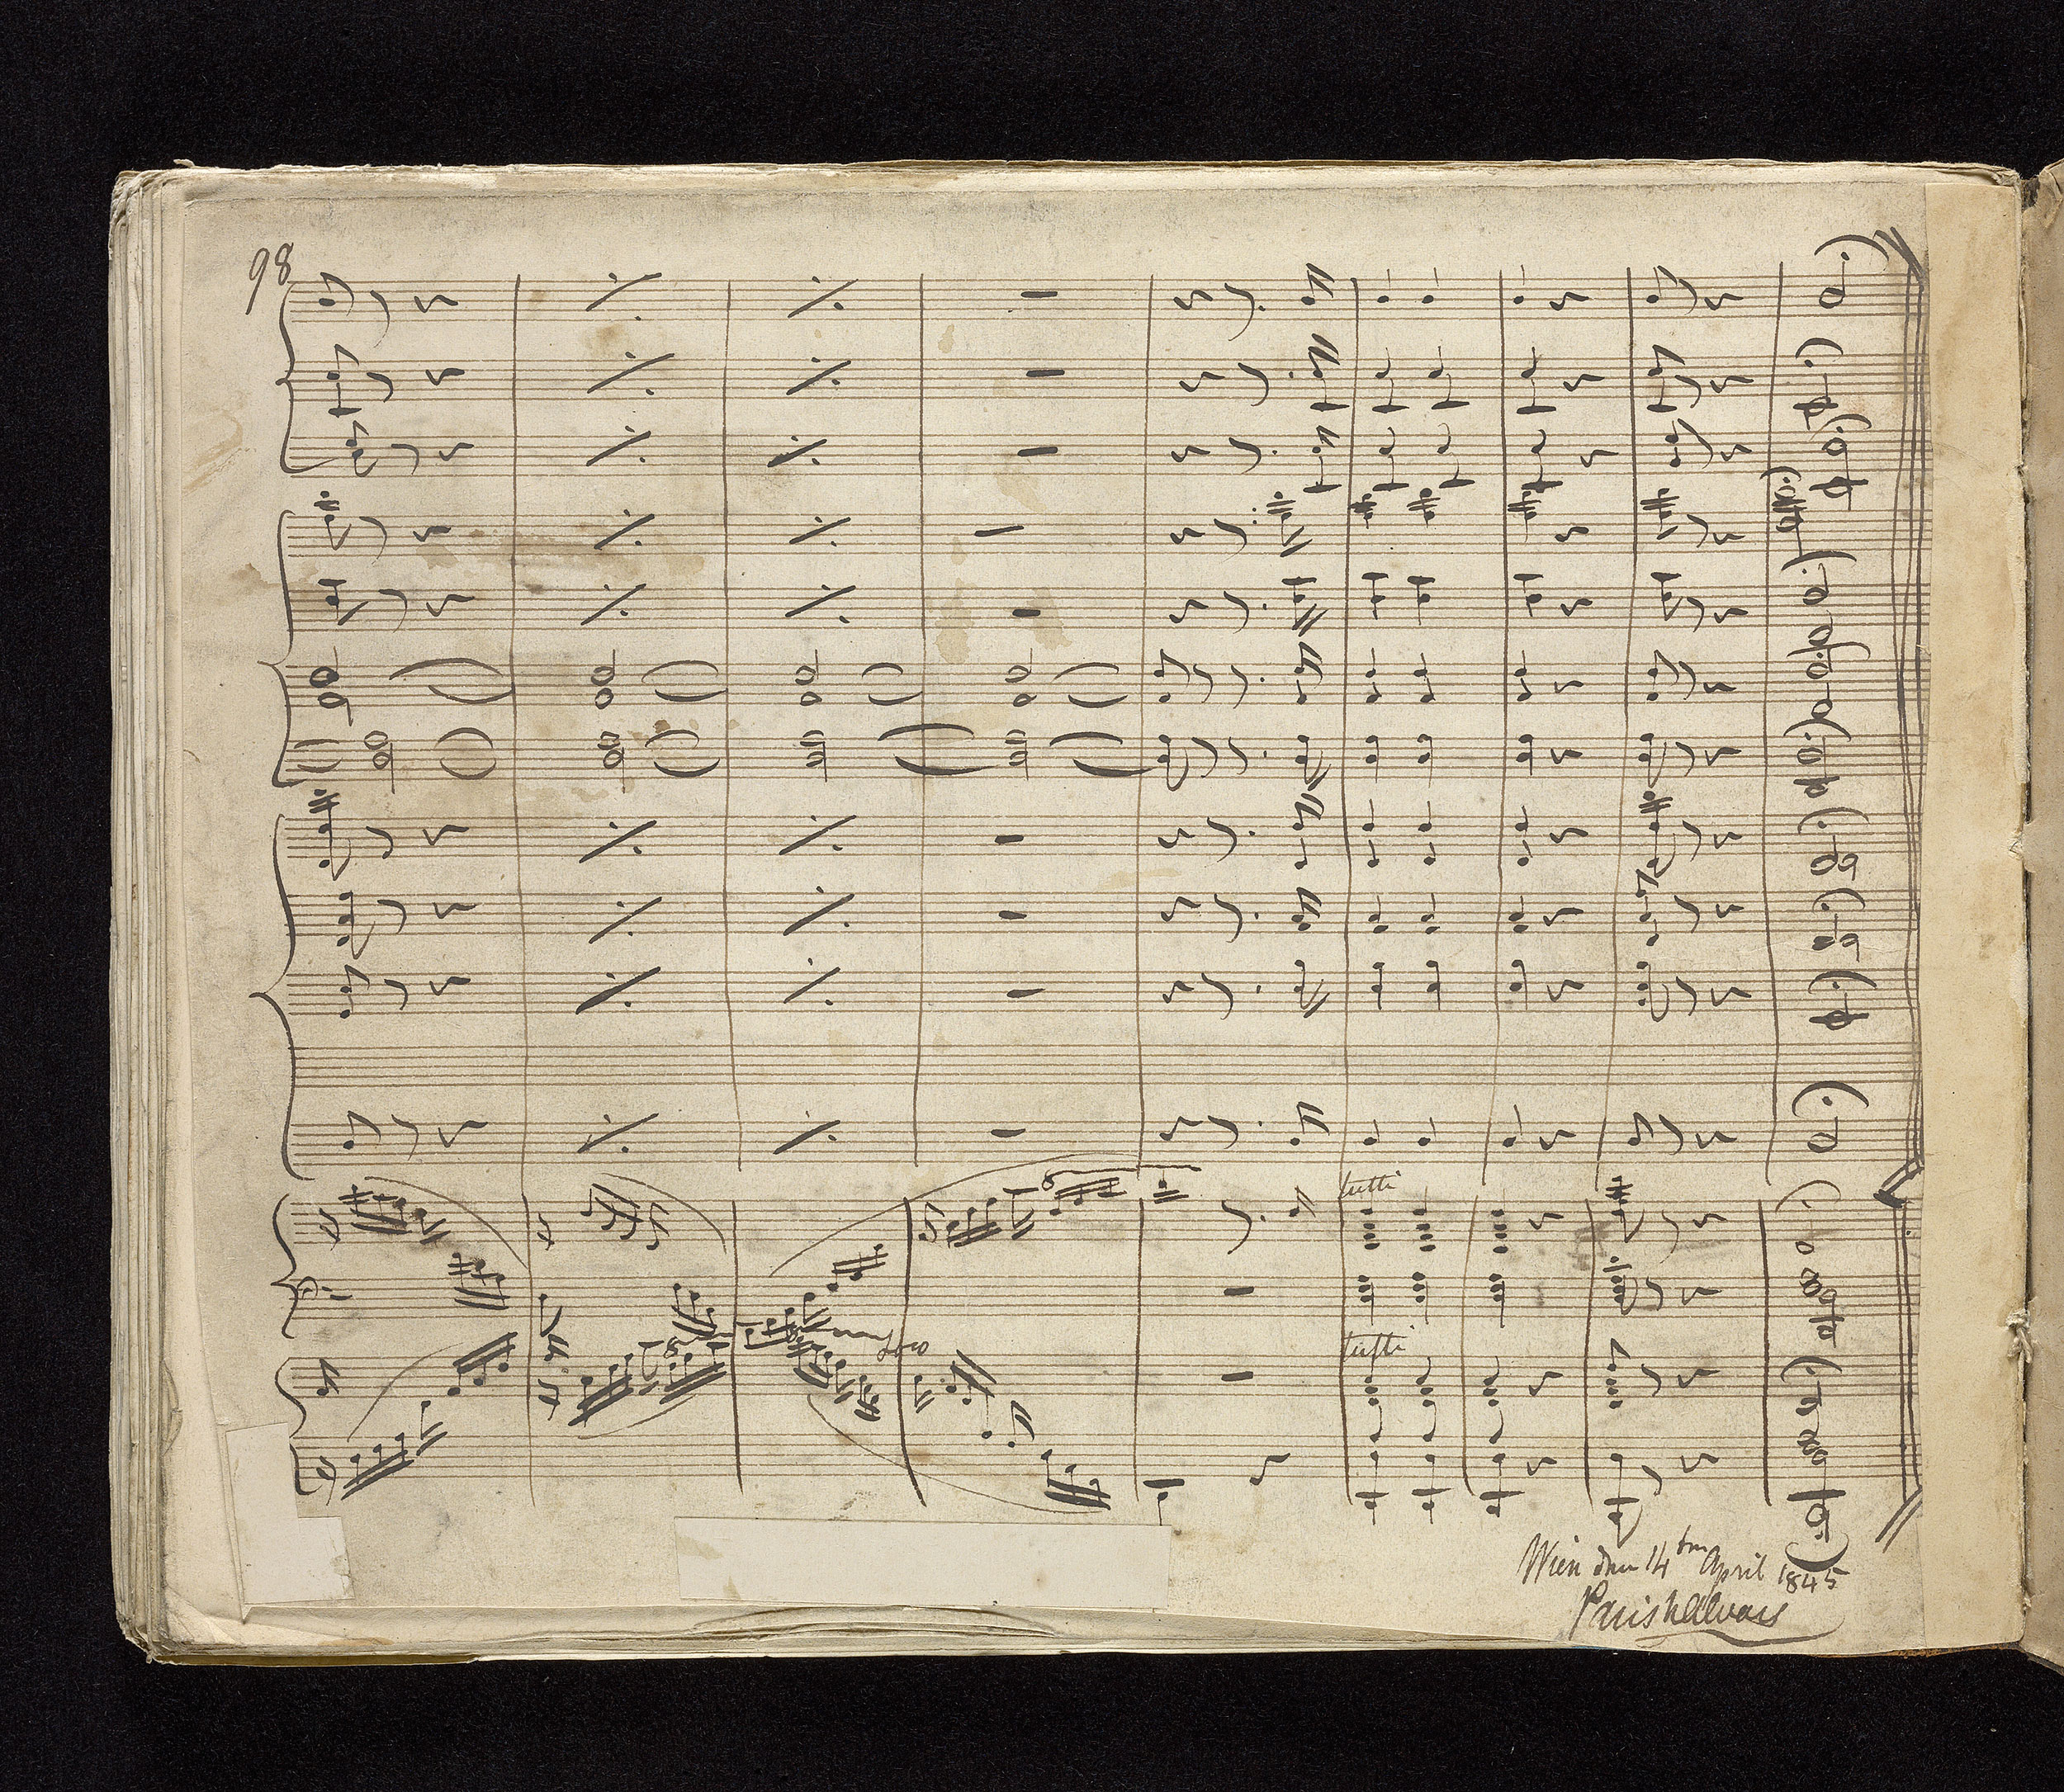 98
8
tutti
8
loco
tutti
Wien den 14ten April 1845
Parish Alvars